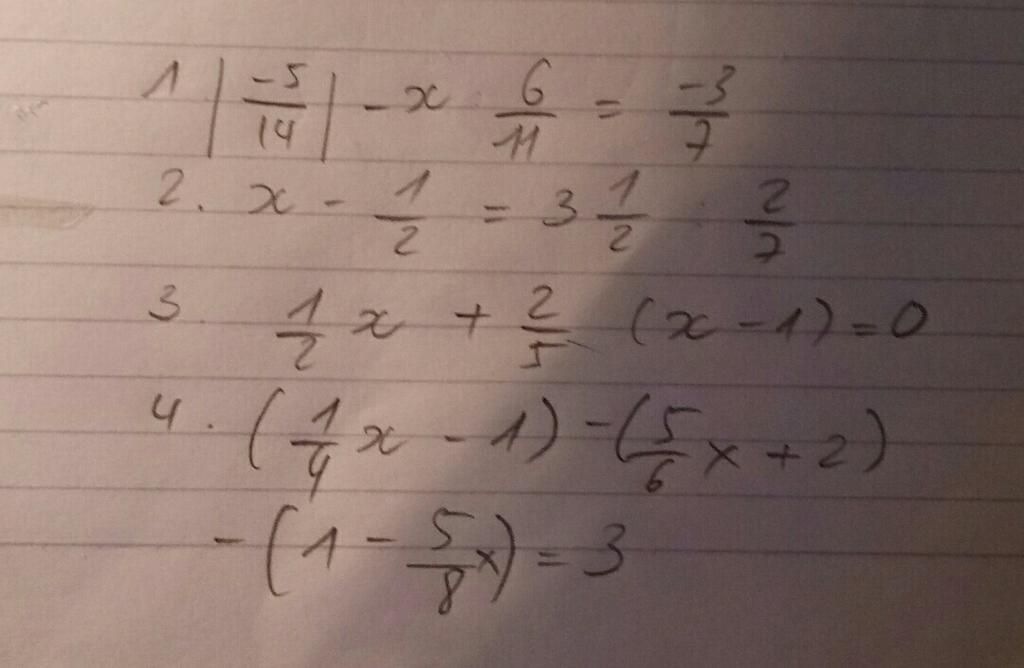 1 |-5/14| - x 6/11 = -3/7
2. x - 1/2 = 3 1/2 · 2/7
3. 1/2 x + 2/5 (x - 1) = 0
4. (1/4 x - 1) - (5/6 x + 2)
- (1 - 5/8 x) = 3